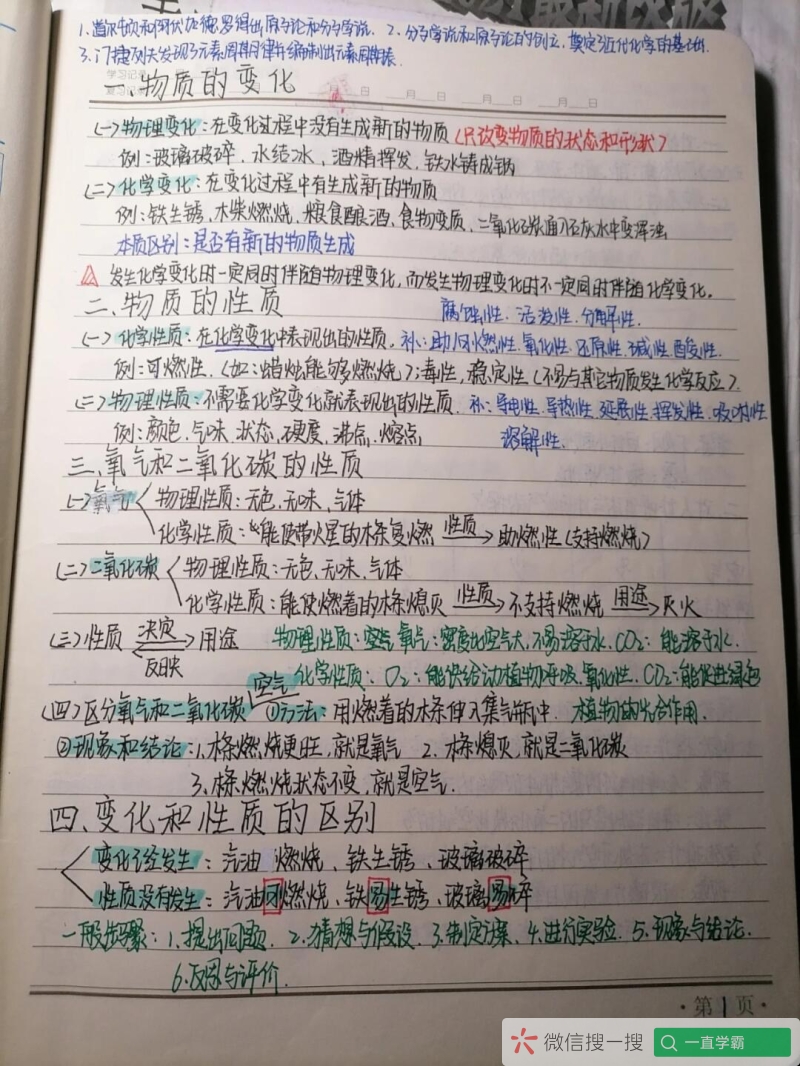 1.道尔顿和阿伏加德罗得出原子论和分子学说. 2.分子学说和原子论的创立,奠定了近代化学的基础.
3.门捷列夫发现了元素周期律并编制出元素周期表.
一、物质的变化
(一)物理变化:在变化过程中没有生成新的物质(只改变物质的状态和形状)
例:玻璃破碎、水结冰、酒精挥发、铁水铸成锅
(二)化学变化:在变化过程中有生成新的物质
例:铁生锈、木柴燃烧、粮食酿酒、食物变质、二氧化碳通入石灰水中变浑浊
本质区别:是否有新的物质生成
发生化学变化时一定同时伴随物理变化,而发生物理变化时不一定同时伴随化学变化.
二、物质的性质
腐蚀性、活泼性、分解性.
(一)化学性质:在化学变化中表现出的性质. 补:助(可)燃性、氧化性、还原性、碱性、酸性.
例:可燃性、(如:蜡烛能够燃烧)、毒性,稳定性(不易与其它物质发生化学反应).
(二)物理性质:不需要化学变化就表现出的性质. 补:导电性、导热性、延展性、挥发性、吸附性
例:颜色、气味、状态、硬度、沸点、熔点
溶解性.
三、氧气和二氧化碳的性质
(一)氧气 物理性质:无色、无味、气体
化学性质:能使带火星的木条复燃 性质 助燃性(支持燃烧)
(二)二氧化碳 物理性质:无色、无味、气体
化学性质:能使燃着的木条熄灭 性质 不支持燃烧 用途 灭火
(三)性质 决定 用途 物理性质:空气氧气:密度比空气大,不易溶于水. CO2:能溶于水.
反映
化学性质: O2:能供给动植物呼吸、氧化性. CO2:能促进绿色
空气
(四)区分氧气和二氧化碳 ①方法:用燃着的木条伸入集气瓶中. 植物的光合作用.
②现象和结论:1、木条燃烧更旺,就是氧气 2、木条熄灭,就是二氧化碳
3、木条燃烧状态不变,就是空气.
四、变化和性质的区别
变化已经发生:汽油燃烧、铁生锈、玻璃破碎
性质没有发生:汽油可燃烧、铁易生锈、玻璃易碎
一般步骤:1、提出问题. 2、猜想与假设. 3、制定方案. 4、进行实验. 5、现象与结论.
6、反思与评价.
·第1页·
微信搜一搜 一直学霸